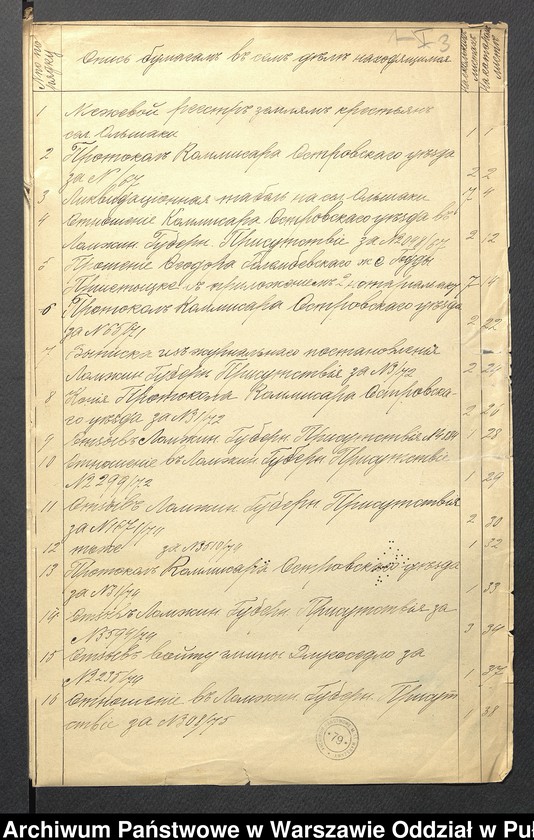 № по порядку
Опись бумагамъ въ семъ дѣлѣ находящимся
На сколькихъ листахъ
На которомъ листѣ
I 3
1 Межевой реестръ землямъ крестьянъ
сел. Ольшаки 1 1
2 Протоколъ Коммисара Островскаго уѣзда
за № 2 2
3 Ликвидационная табель на сел. Ольшаки 7 4
4 Отношеніе Коммисара Островскаго уѣзда въ
Ломжин. Губерн. Присутствіе за № 2 12
5 Прошеніе Ѳеодора
съ приложеніемъ 2 7 14
6 Протоколъ Коммисара Островскаго уѣзда
за №55/71 2 22
7 Выписка изъ журнальнаго постановленія
Ломжин Губерн Присутствія за №3/72 2 24
8 Копія Протокола Коммисара Островска-
го уѣзда за №31/72 2 26
9 Отзывъ Ломжин Губерн. Присутствія 1 28
10 Отношеніе въ Ломжин. Губерн. Присутствіе
№2299/72 1 29
11 Отзывъ Ломжин Губерн Присутствія
за 2 30
12 тоже за №3510/74 1 32
13 Протоколъ Коммисара Островскаго уѣзда
за №31/74 1 33
14 Отзывъ Ломжин Губерн. Присутствія за
№3594/74 3 34
15 Отзывъ войту гмины Длугоседло за
№2235/74 1 37
16 Отношеніе въ Ломжин. Губерн. Присут
ствіе за №308/75 1 38
79
Archiwum Państwowe w Warszawie Oddział w Puł